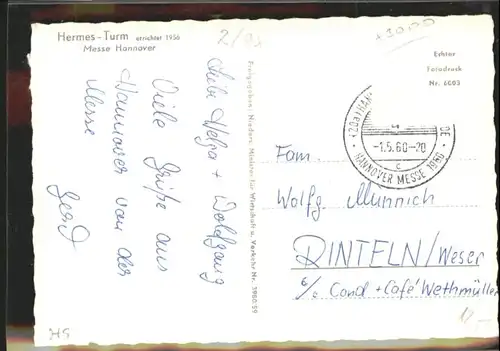 Hermes-Turm errichtet 1956
Messe Hannover
Liebe Helga + Wolfgang
Viele Grüße aus
Hannover von der
Messe
Gerd
Freigegeben: Nieders. Minister. für Wirtschaft u. Verkehr Nr. 3980/59
+30,00
Echter
Fotodruck
Nr. 6003
(20a) HAN
-1.5.60-20
c
HANNOVER MESSE 1960
Fam.
Wolfg. Münnich
RINTELN/Weser
c/o Cond + Café Wethmüller
12,-